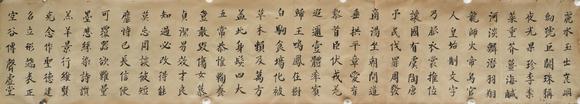 麗水玉出崑岡
劍號巨闕珠稱
夜光果珍李柰
菜重芥薑海鹹
河淡鱗潛羽翔
龍師火帝鳥官
人皇始制文字
乃服衣裳推位
讓國有虞陶唐
弔民伐罪周發
商湯坐朝問道
垂拱平章愛育
黎首臣伏戎羌
遐邇壹體率賓
歸王鳴鳳在樹
白駒食場化被
草木賴及萬方
蓋此身髮四大
五常恭惟鞠養
豈敢毀傷女慕
貞潔男效才良
知過必改得能
莫忘罔談彼短
靡恃己長信使
可覆器欲難量
墨悲絲染詩讚
羔羊景行維賢
克念作聖德建
名立形端表正
空谷傳聲虛堂